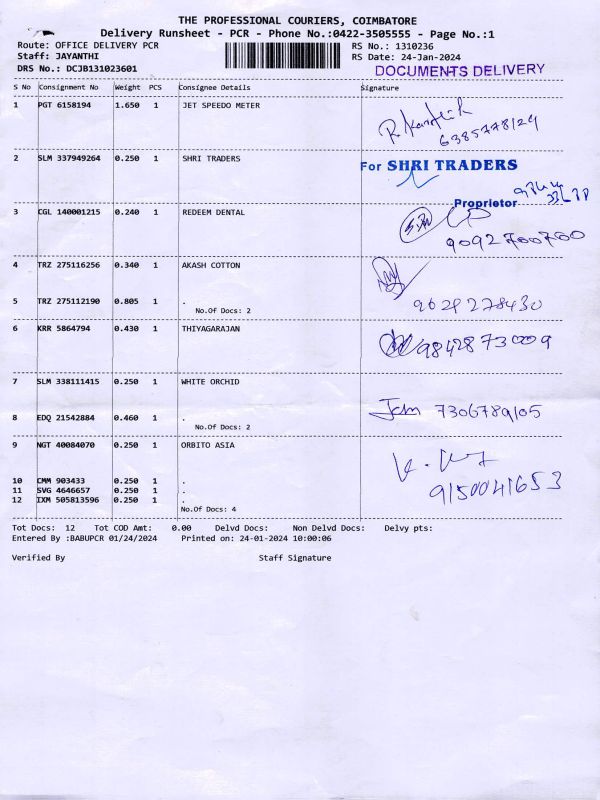 THE PROFESSIONAL COURIERS, COIMBATORE
Delivery Runsheet - PCR - Phone No.:0422-3505555 - Page No.:1
Route: OFFICE DELIVERY PCR RS No.: 1310236
Staff: JAYANTHI RS Date: 24-Jan-2024
DRS No.: DCJB131023601 DOCUMENTS DELIVERY
S No Consignment No Weight PCS Consignee Details Signature
1 PGT 6158194 1.650 1 JET SPEEDO METER
6385778129
2 SLM 337949264 0.250 1 SHRI TRADERS For SHRI TRADERS
Proprietor
3 CGL 140001215 0.240 1 REDEEM DENTAL
9092700700
4 TRZ 275116256 0.340 1 AKASH COTTON
5 TRZ 275112190 0.805 1 .
No.Of Docs: 2 9629278430
6 KRR 5864794 0.430 1 THIYAGARAJAN
9842873009
7 SLM 338111415 0.250 1 WHITE ORCHID
8 EDQ 21542884 0.460 1 . 7306789105
No.Of Docs: 2
9 NGT 40084070 0.250 1 ORBITO ASIA
10 CMM 903433 0.250 1 .
11 SVG 4646657 0.250 1 . 9150041653
12 IXM 505813596 0.250 1 .
No.Of Docs: 4
Tot Docs: 12 Tot COD Amt: 0.00 Delvd Docs: Non Delvd Docs: Delvy pts:
Entered By :BABUPCR 01/24/2024 Printed on: 24-01-2024 10:00:06
Verified By Staff Signature